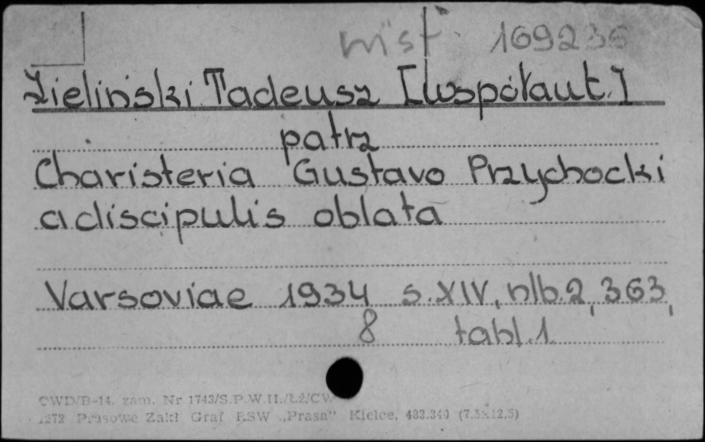 hist. 169236
Zieliński Tadeusz [współaut.]
patrz
Charisteria Gustavo Przychocki
a discipulis oblata
Varsoviae 1934 s. XIV, nlb. 2, 363,
8 tabl. 1
CWD/B-14. zam. Nr 1743/S.P.W.II./Ł2/CW
1272 Prasowe Zakł Graf RSW „Prasa" Kielce. 433.340 (7.5x12,5)